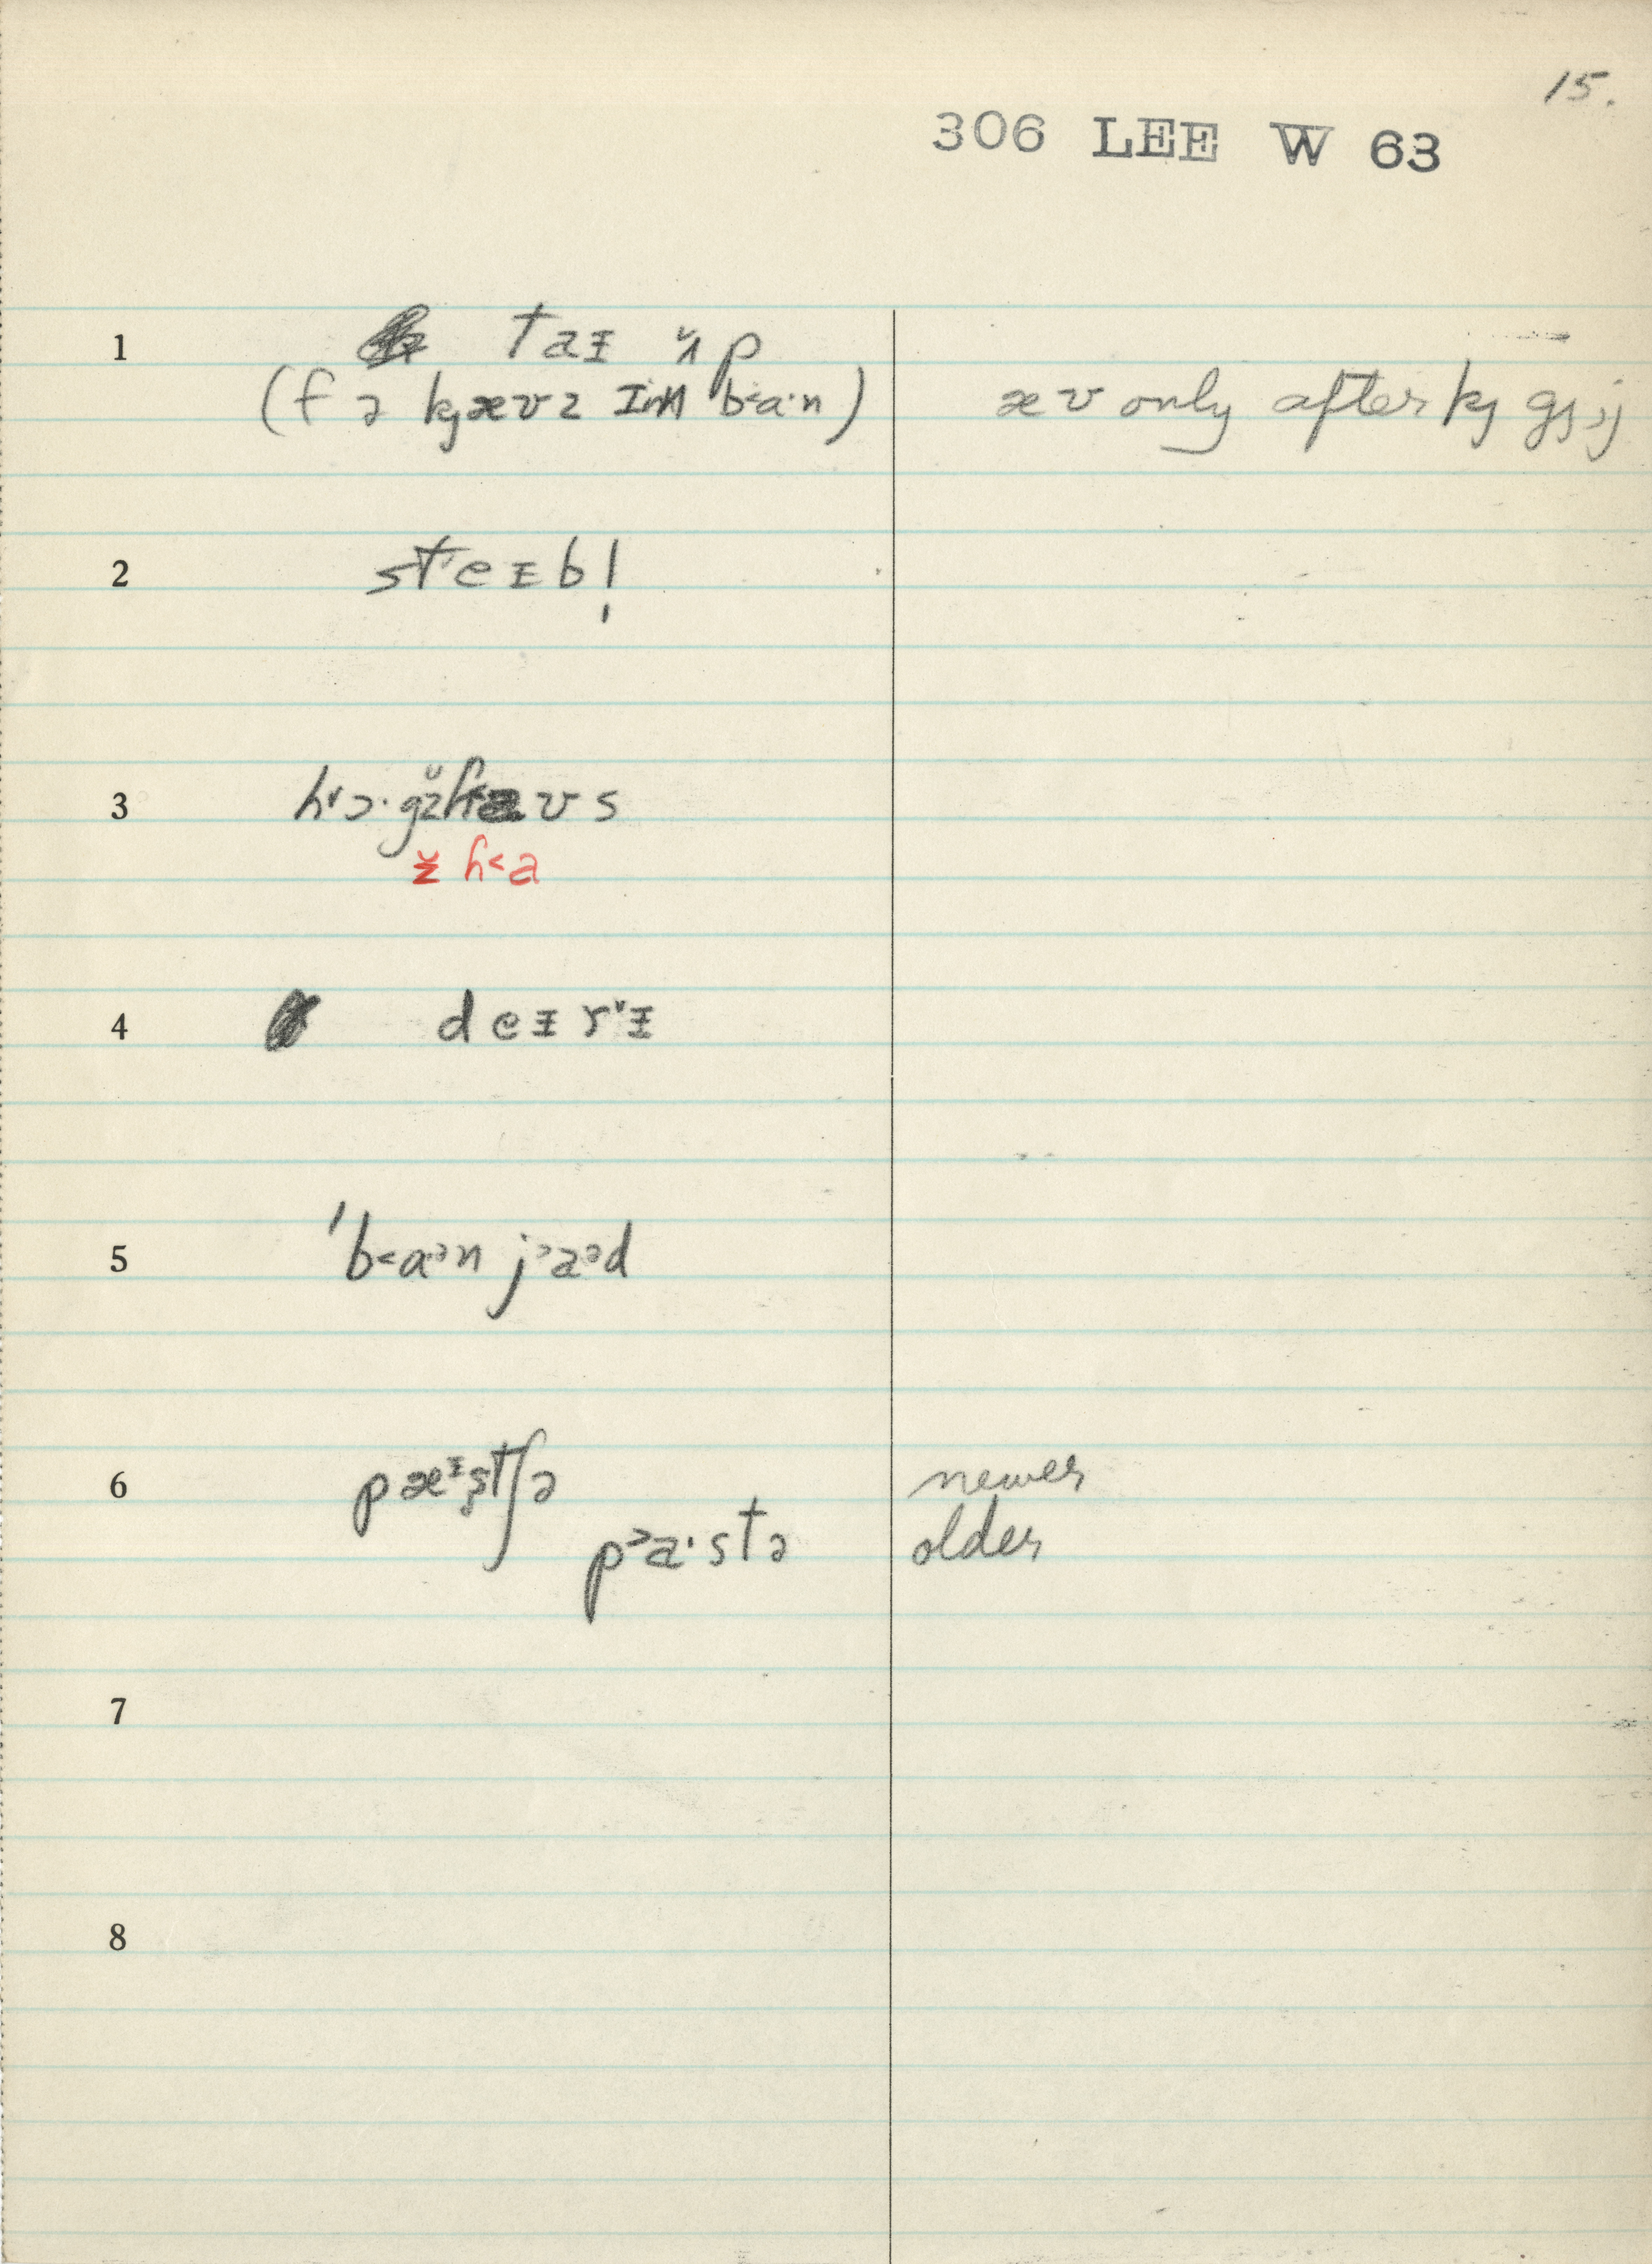 15.
306 LEE W 63
1 taɪ ʌ̆p
(f ə kj æʊz ɪn b˂a·n) æʊ only after kj gj ; j
2 steɪbl̩
3 h˅ɔ·gz̆ h˂aʊs
z̆ h˂a
4 deɪr˅ɪ
5 ˈb˂aᵊn j˃aᵊd
6 pæᶦʂtʃə newer
p˃a·stə older
7
8